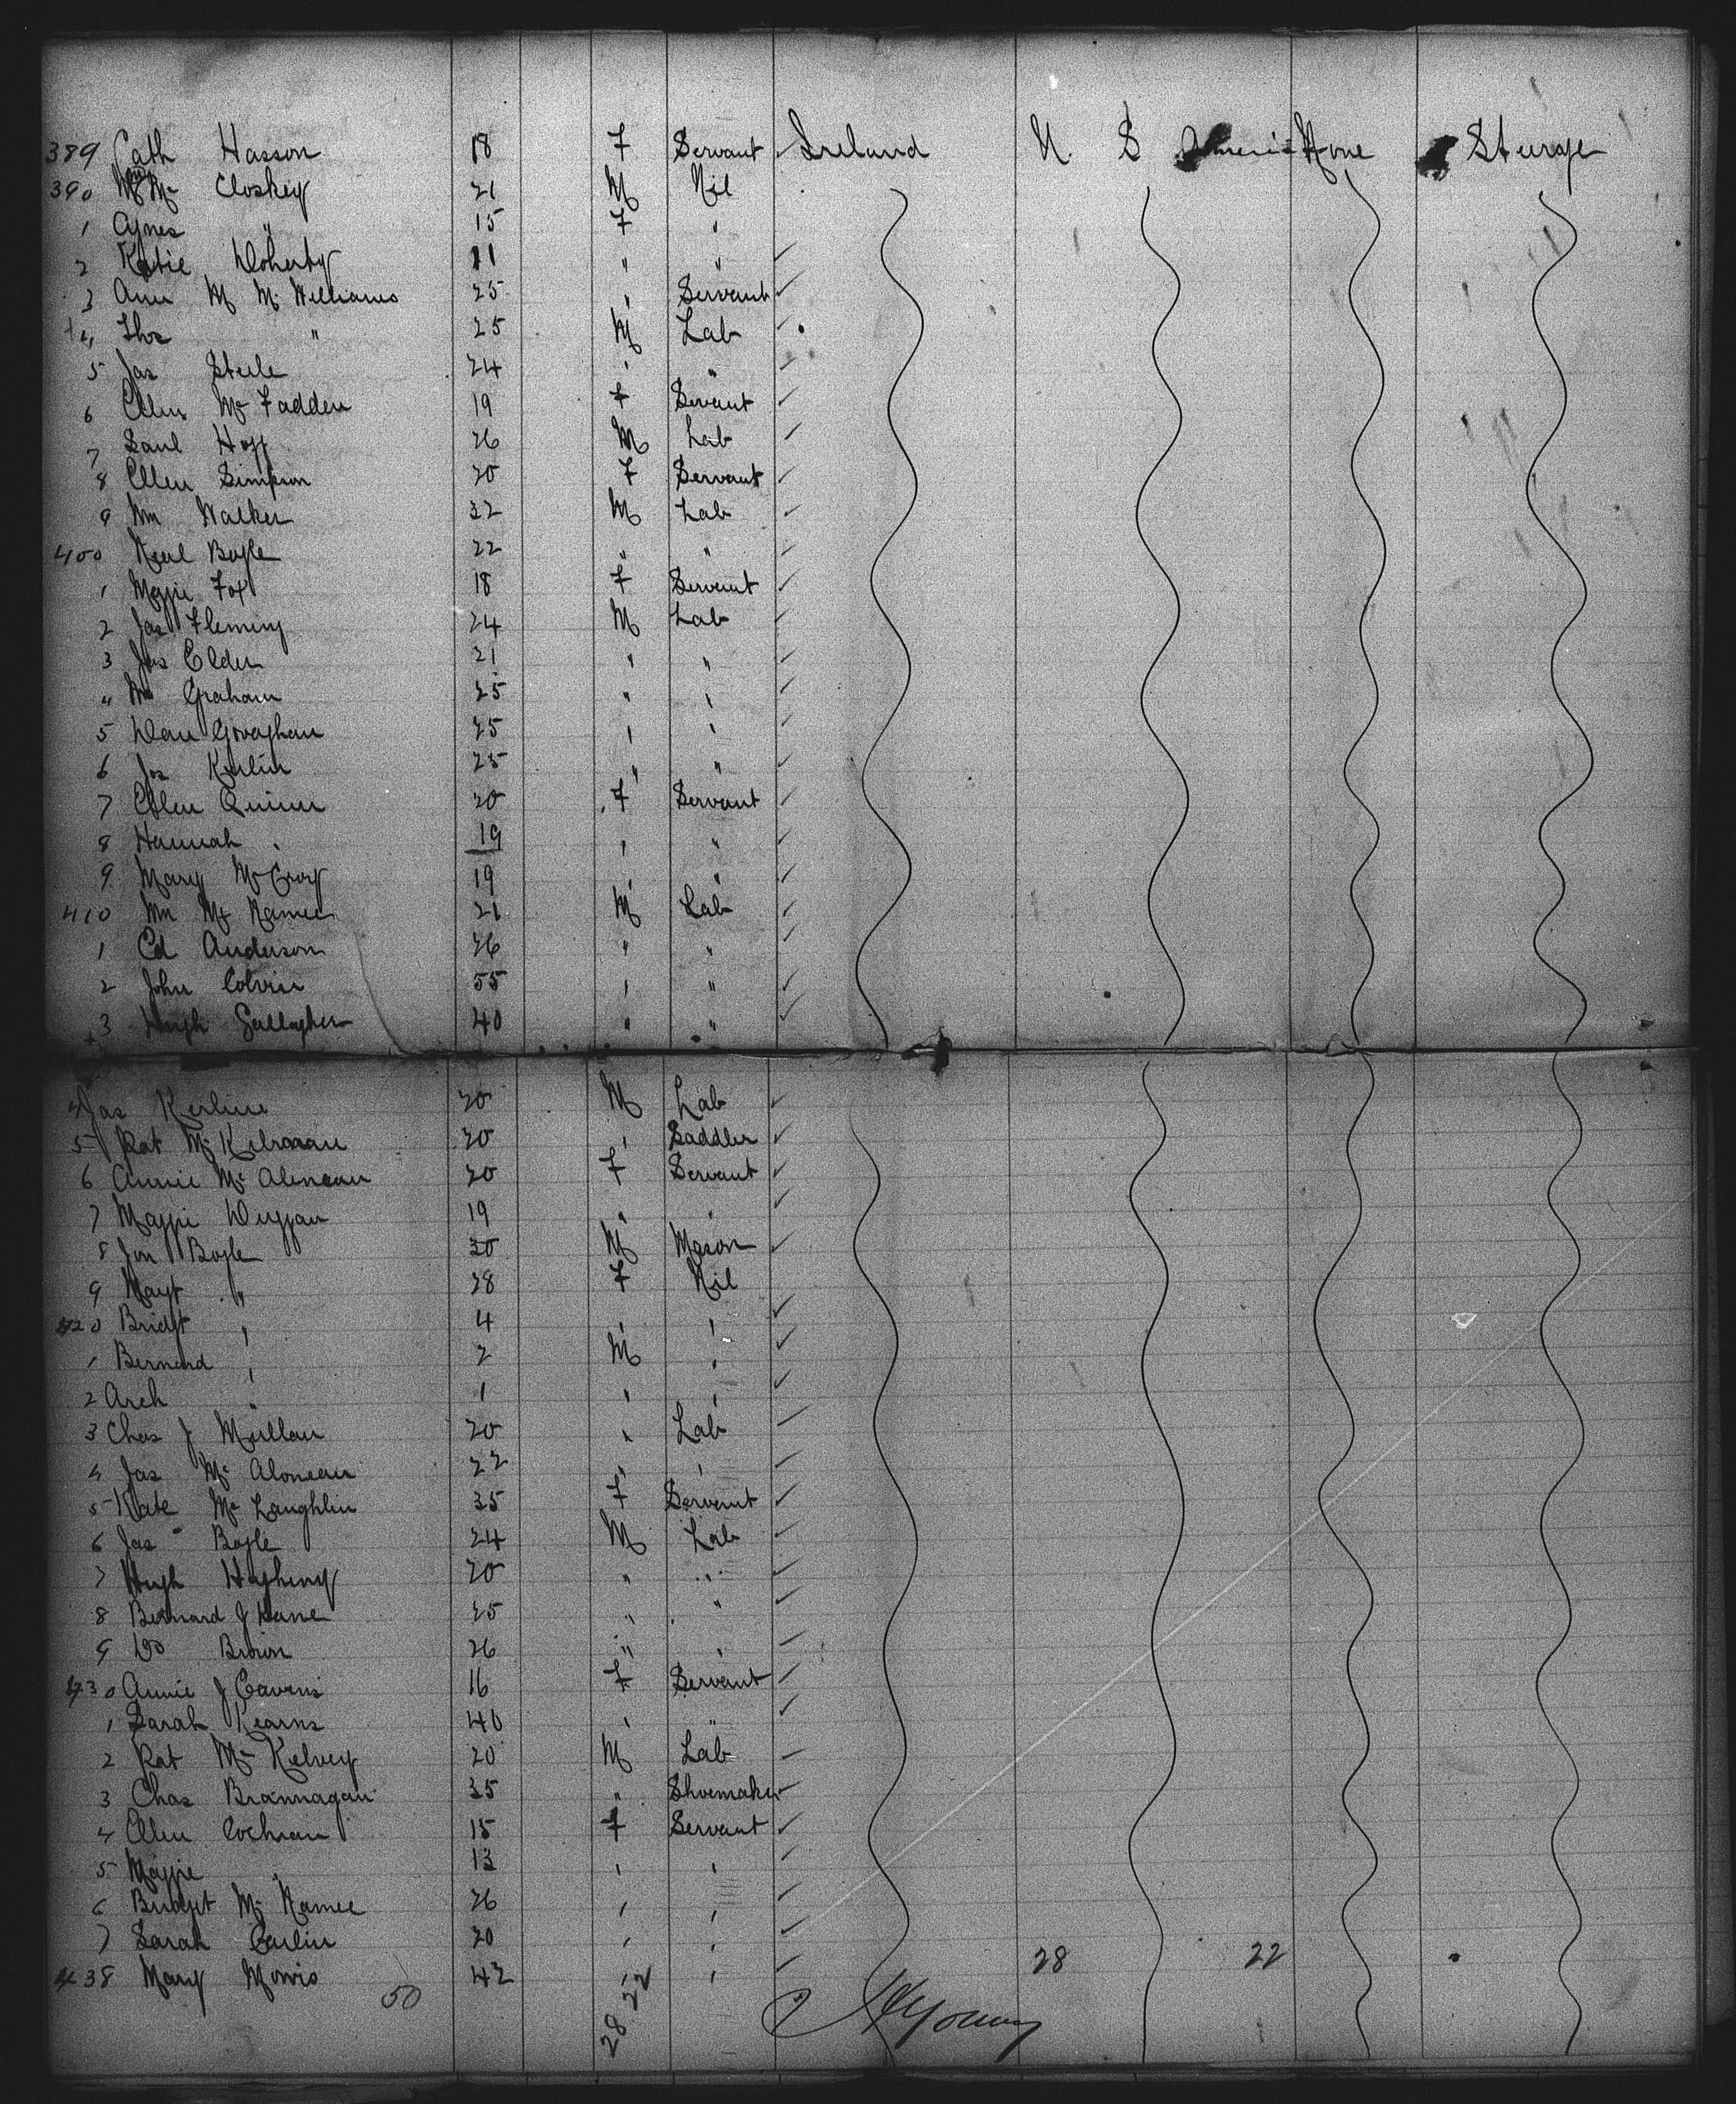 389 Cath Hasson 18 F Servant ✓ Ireland U. S America None Sturage
390 Mc Closkey 21 M Nil
1 Agnes " 15 F "
2 Katie Doherty 11 " " ✓
3 Ann M Mc Williams 25 " Servant ✓
4 Thos " 25 M Lab ✓
5 Jas Steele 24 " " ✓
6 Ellen Mc Fadden 19 F Servant ✓
7 Saml 26 M Lab ✓
8 Ellen Simpson 20 F Servant ✓
9 Wm Walker 22 M Lab ✓
400 Neal Boyle 22 " " ✓
1 Maggie Fox 18 F Servant ✓
2 Jas Fleming 24 M Lab ✓
3 Jas Elder 21 " " ✓
4 Wm Graham 25 " " ✓
5 Dan Gvaghan 25 " " ✓
6 Jas Kerlin 25 " " ✓
7 Ellen Quinn 20 F Servant ✓
8 Hannah " 19 " " ✓
9 Mary McCrory 19 " " ✓
410 Wm Mc Namee 21 M Lab ✓
1 Ed Anderson 26 " " ✓
2 John Colvin 55 " " ✓
3 Hugh Gallagher 40 " " ✓
4 Jas Kerline 20 M Lab ✓
5 Pat Mc 20 " Saddler ✓
6 Annie Mc Alenean 20 F Servant ✓
7 Maggie Duggan 19 " " ✓
8 Jon Boyle 30 M Mason ✓
9 Margt " 28 F Nil
420 Bridgt " 4 " " ✓
1 Bernard " 2 M " ✓
2 Arch " 1 " " ✓
3 Chas J Mullan 20 " Lab ✓
4 Jas Mc Alonean 22 " " ✓
5 Kate Mc Laughlin 35 F Servant ✓
6 Jas Boyle 24 M Lab ✓
7 Hugh 20 " " ✓
8 Bernard J Kane 25 " " ✓
9 Do Brown 26 " " ✓
430 Annie J Cavens 16 F Servant ✓
1 Sarah Kearns 40 " " ✓
2 Pat Mc Kelvey 20 M Lab ✓
3 Chas Brannagan 35 " Shoemaker ✓
4 Ellen Cochran 15 F Servant ✓
5 Maggie " 13 " " ✓
6 Bridget Mc Namee 26 " " ✓
7 Sarah Carlin 20 " " ✓
438 Mary Morris 42 " " ✓ 28 22
50 28 22 Young